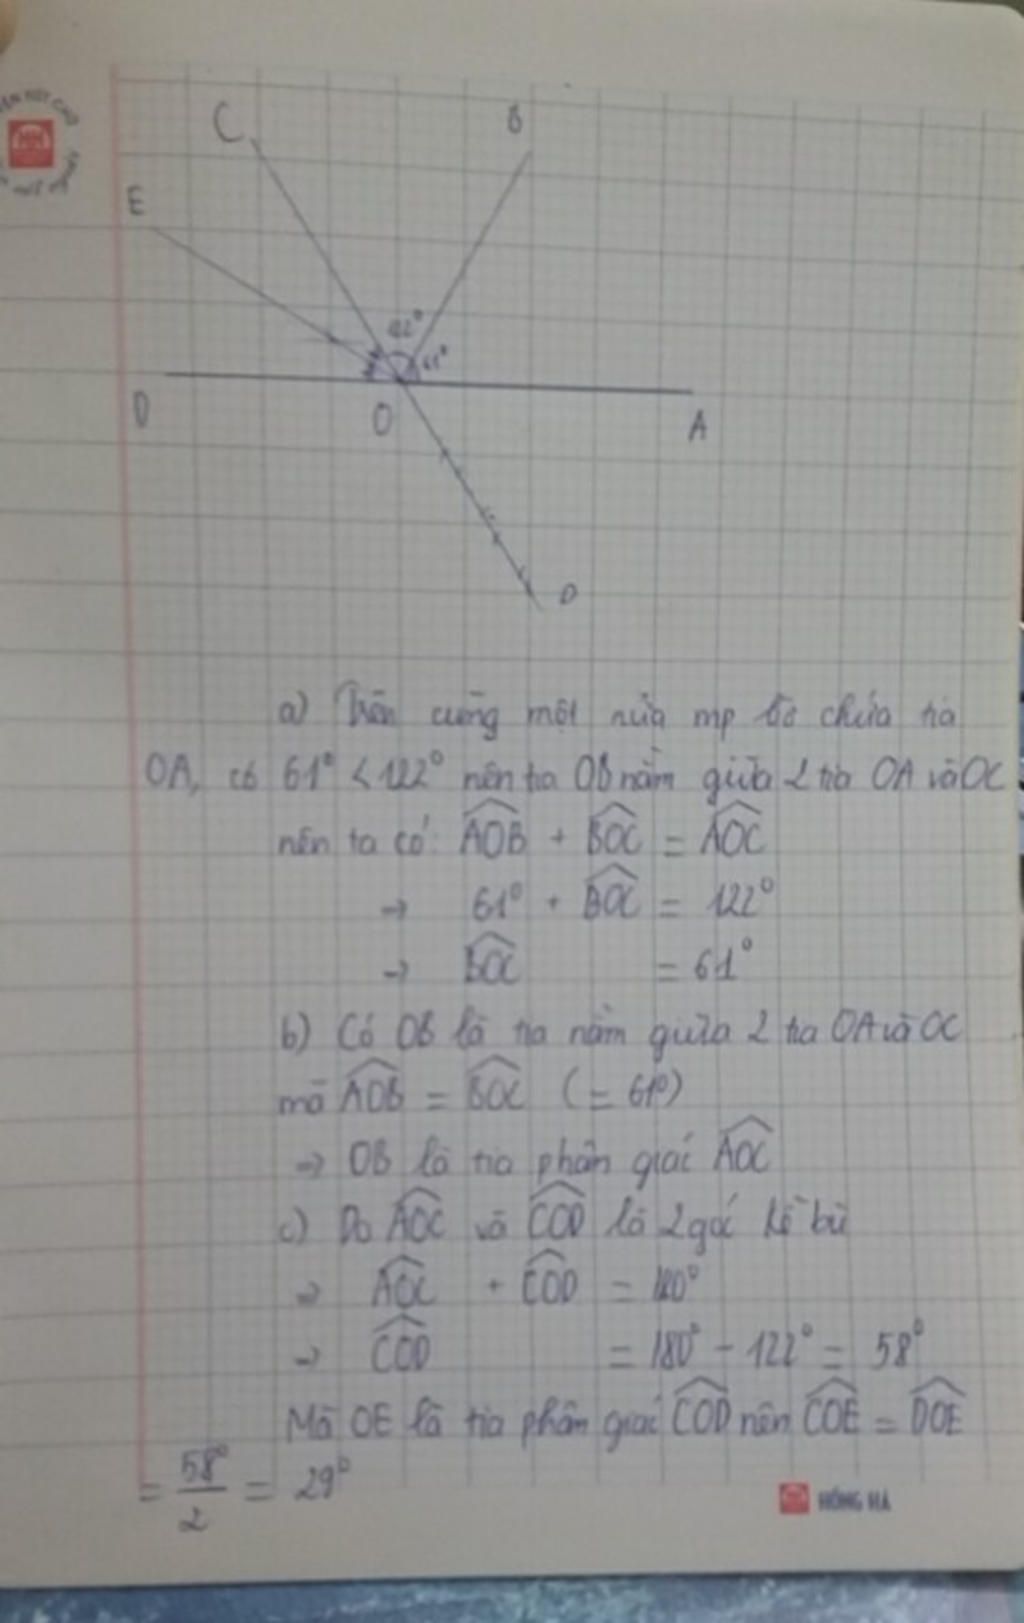 C
B
E
122°
61°
D
O
A
D
a) Trên cùng một nửa mp bờ chứa tia
OA, có 61° < 122° nên tia OB nằm giữa 2 tia OA và OC
nên ta có: AOB + BOC = AOC
→ 61° + BOC = 122°
→ BOC = 61°
b) Có OB là tia nằm giữa 2 tia OA và OC
mà AOB = BOC (= 61°)
→ OB là tia phân giác AOC
c) Do AOC và COD là 2 góc kề bù
→ AOC + COD = 180°
→ COD = 180° - 122° = 58°
Mà OE là tia phân giác COD nên COE = DOE
= 58°/2 = 29°
HỒNG HÀ